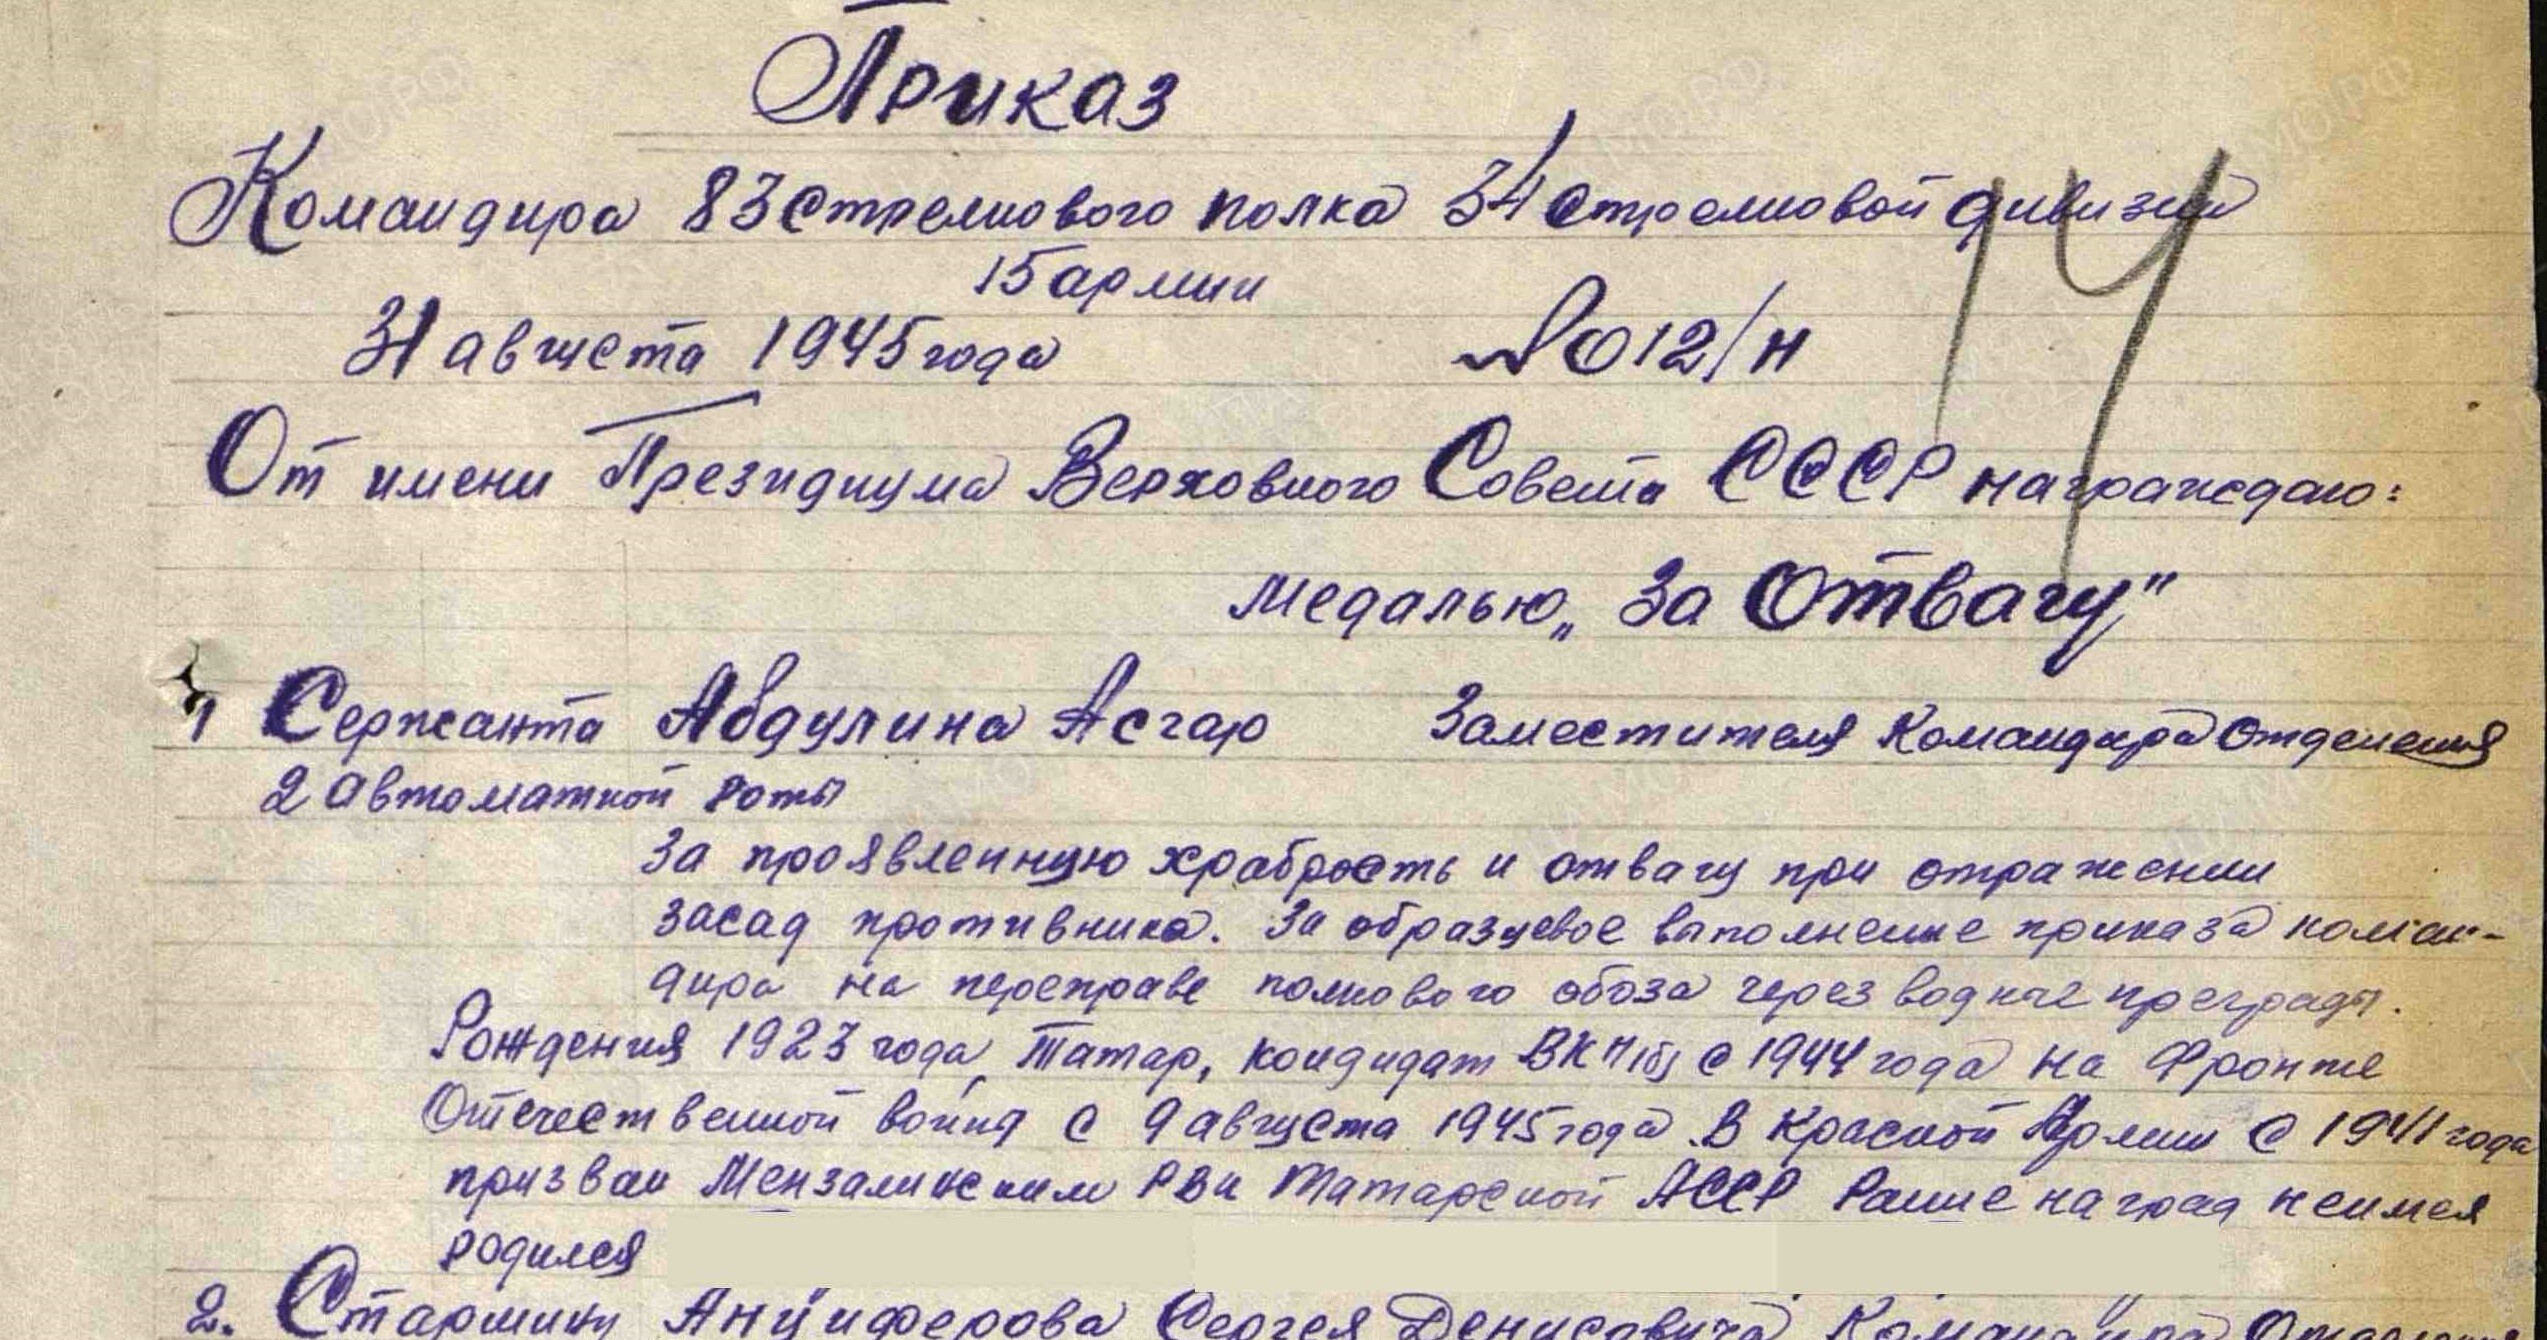 Приказ
Командира 83 Стрелкового полка 34 Стрелковой дивизии
15 армии
31 августа 1945 года № 012/н
От имени Президиума Верховного Совета СССР награждаю:
Медалью „За Отвагу"
1 Сержанта Абдулина Асгар Заместителя Командира Отделения
2 автоматной роты
За проявленную храбрость и отвагу при отражении
засад противника. За образцевое выполнение приказа коман-
дира на переправе полкового обоза через водные преграды.
Рождения 1923 года, Татар, кондидат ВКП(б) с 1944 года на Фронте
Отечественной войны с 9 августа 1945 года В Красной Армии с 1941 года
призван Мензалинским РВК Татарской АССР Ранее наград неимел
родился
2. Старшину Анциферова Сергея Денисовича Командира